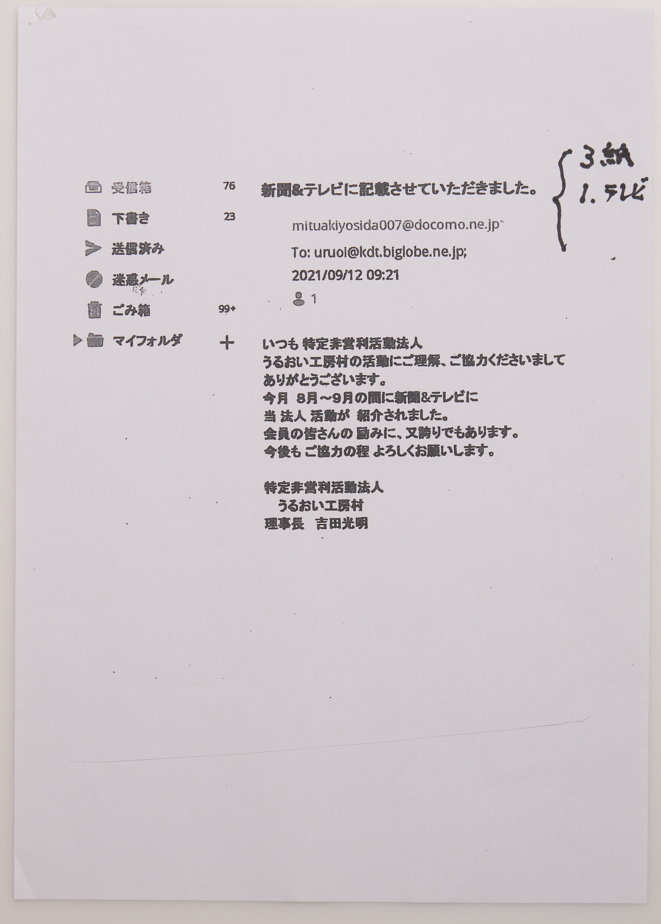 受信箱 76
下書き 23
送信済み
迷惑メール
ごみ箱 99+
マイフォルダ +
新聞&テレビに記載させていただきました。
3紙
1.テレビ
mituakiyosida007@docomo.ne.jp
To: uruoi@kdt.biglobe.ne.jp;
2021/09/12 09:21
1
いつも 特定非営利活動法人
うるおい工房村の活動にご理解、ご協力くださいまして
ありがとうございます。
今月 8月~9月の間に新聞&テレビに
当 法人 活動が 紹介されました。
会員の皆さんの 励みに、又誇りでもあります。
今後も ご協力の程 よろしくお願いします。
特定非営利活動法人
うるおい工房村
理事長 吉田光明